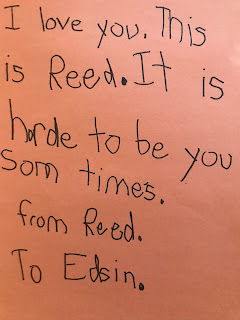 I love you. This
is Reed. It is
horde to be you
som times.
from Reed.
To Edsin.